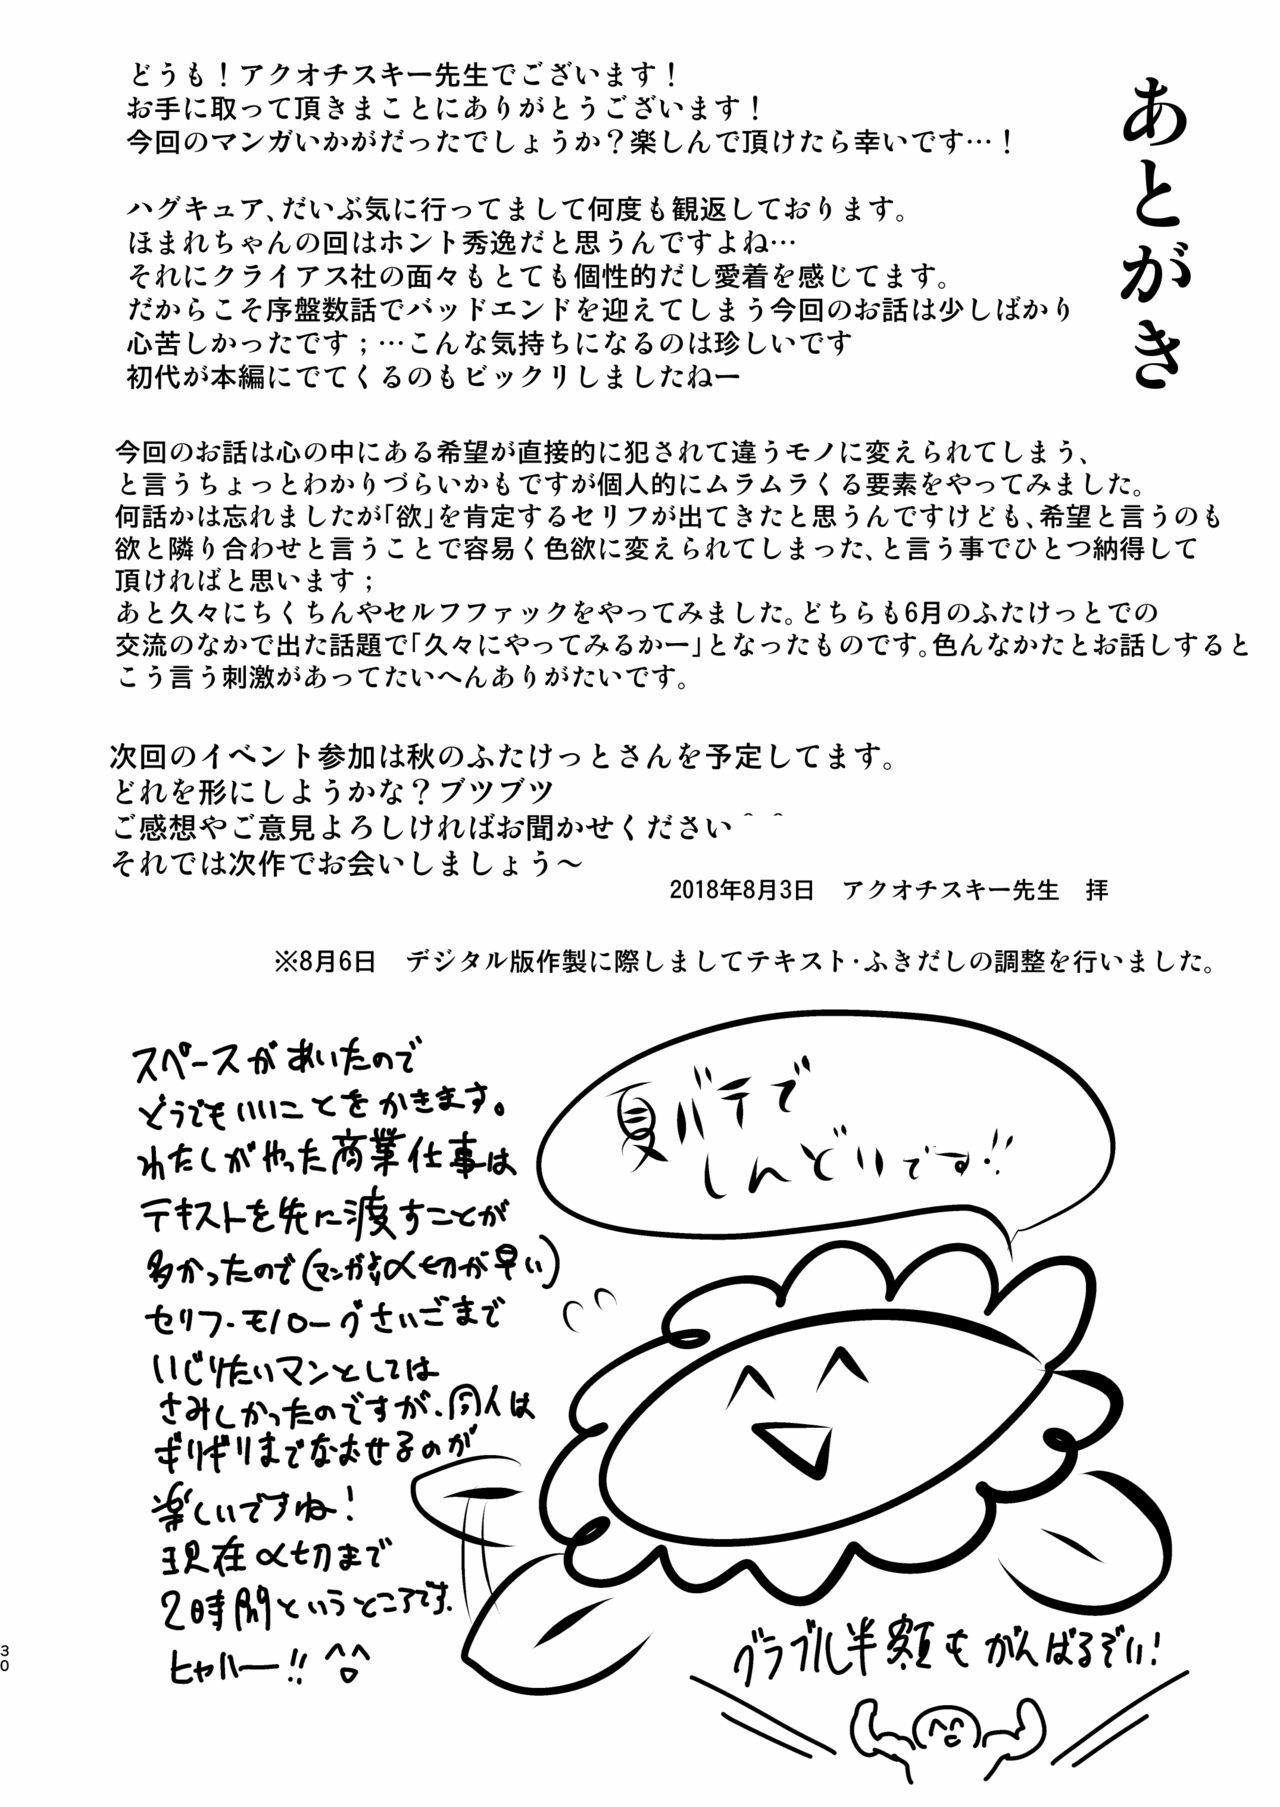 あとがき
どうも！アクオチスキー先生でございます！
お手に取って頂きまことにありがとうございます！
今回のマンガいかがだったでしょうか？楽しんで頂けたら幸いです…！
ハグキュア、だいぶ気に行ってまして何度も観返しております。
ほまれちゃんの回はホント秀逸だと思うんですよね…
それにクライアス社の面々もとても個性的だし愛着を感じてます。
だからこそ序盤数話でバッドエンドを迎えてしまう今回のお話は少しばかり
心苦しかったです；…こんな気持ちになるのは珍しいです
初代が本編にでてくるのもビックリしましたねー
今回のお話は心の中にある希望が直接的に犯されて違うモノに変えられてしまう、
と言うちょっとわかりづらいかもですが個人的にムラムラくる要素をやってみました。
何話かは忘れましたが「欲」を肯定するセリフが出てきたと思うんですけども、希望と言うのも
欲と隣り合わせと言うことで容易く色欲に変えられてしまった、と言う事でひとつ納得して
頂ければと思います；
あと久々にちくちんやセルフファックをやってみました。どちらも6月のふたけっとでの
交流のなかで出た話題で「久々にやってみるかー」となったものです。色んなかたとお話しすると
こう言う刺激があってたいへんありがたいです。
次回のイベント参加は秋のふたけっとさんを予定してます。
どれを形にしようかな？ブツブツ
ご感想やご意見よろしければお聞かせください＾＾
それでは次作でお会いしましょう～
2018年8月3日　アクオチスキー先生　拝
※8月6日　デジタル版作製に際しましてテキスト・ふきだしの調整を行いました。
夏バテで
しんどいです!!
スペースがあいたので
どうでもいいことをかきます。
わたしがやった商業仕事は
テキストを先に渡すことが
多かったので(マンガより〆切が早い)
セリフ・モノローグさいごまで
いじりたいマンとしては
さみしかったのですが、同人は
ギリギリまでなおせるのが
楽しいですね！
現在〆切まで
2時間というところです。
ヒャハー!! ^^
グラブル半額もがんばるぞい！
30